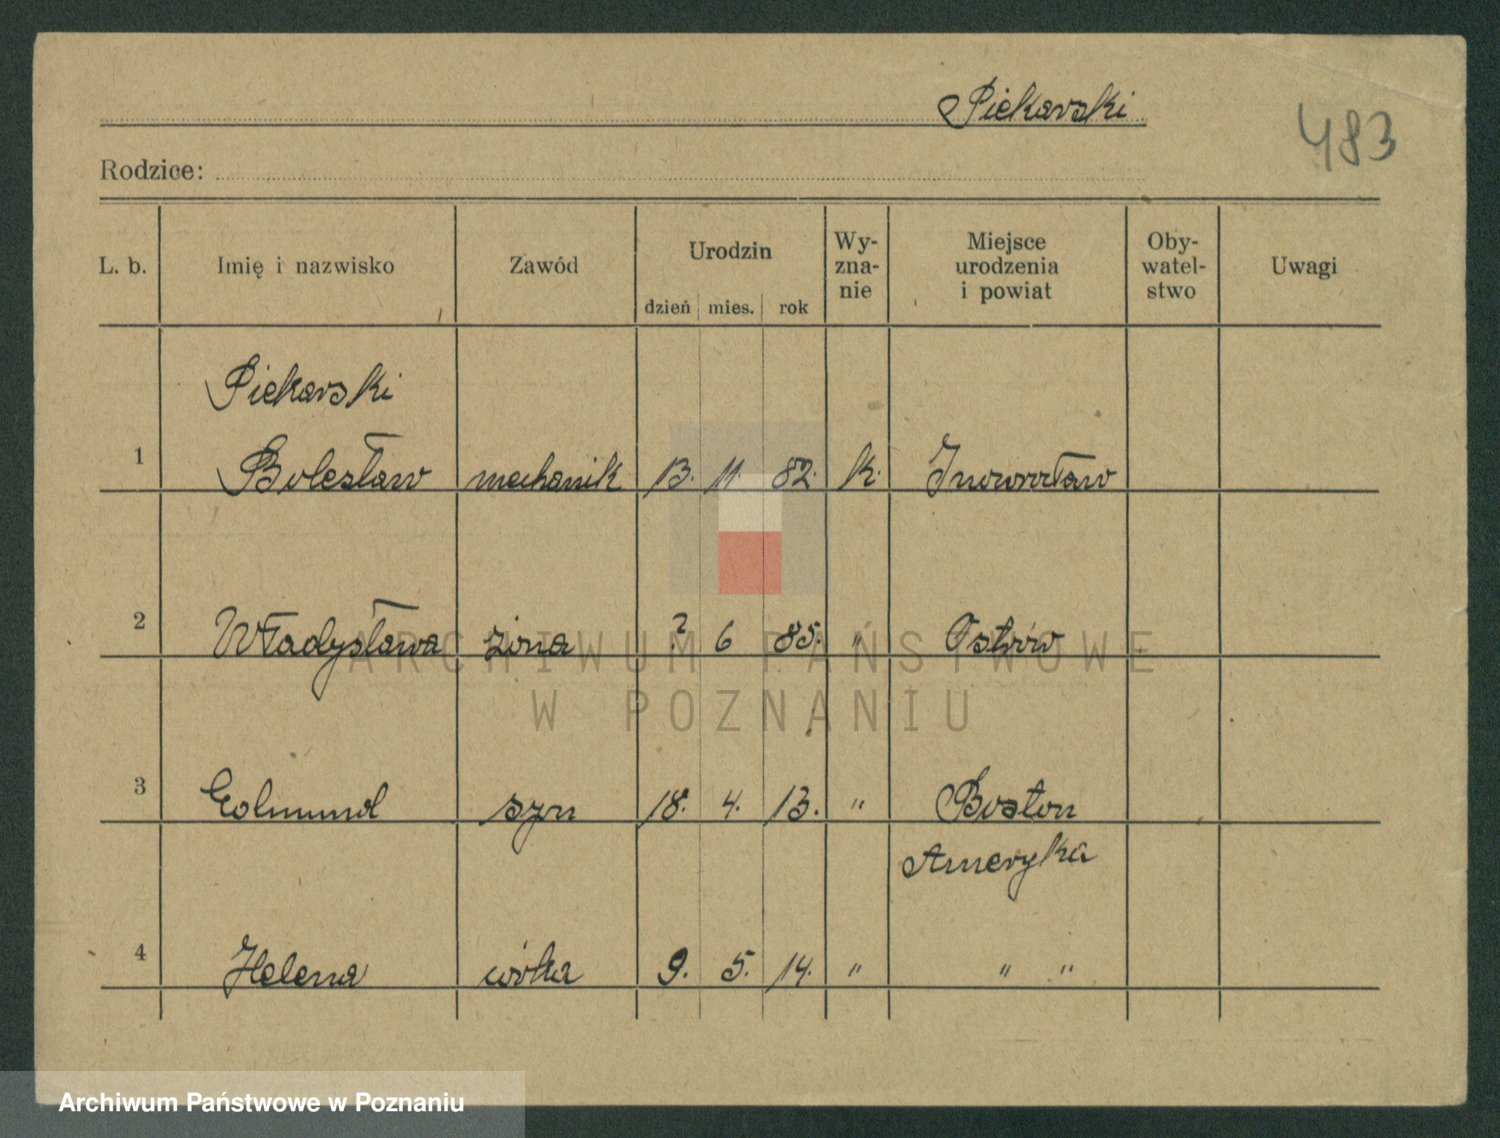 Piekarski
483
Rodzice:
L. b. Imię i nazwisko Zawód Urodzin dzień mies. rok Wy-zna-nie Miejsce urodzenia i powiat Oby-watel-stwo Uwagi
Piekarski
1 Bolesław mechanik 13. 11. 82. k. Inowrocław
2 Władysława żona ? 6 85. " Ostrów
ARCHIWUM PAŃSTWOWE
W POZNANIU
3 Edmund syn 18. 4. 13. " Boston
Ameryka
4 Helena córka 9. 5. 14. " " "
Archiwum Państwowe w Poznaniu